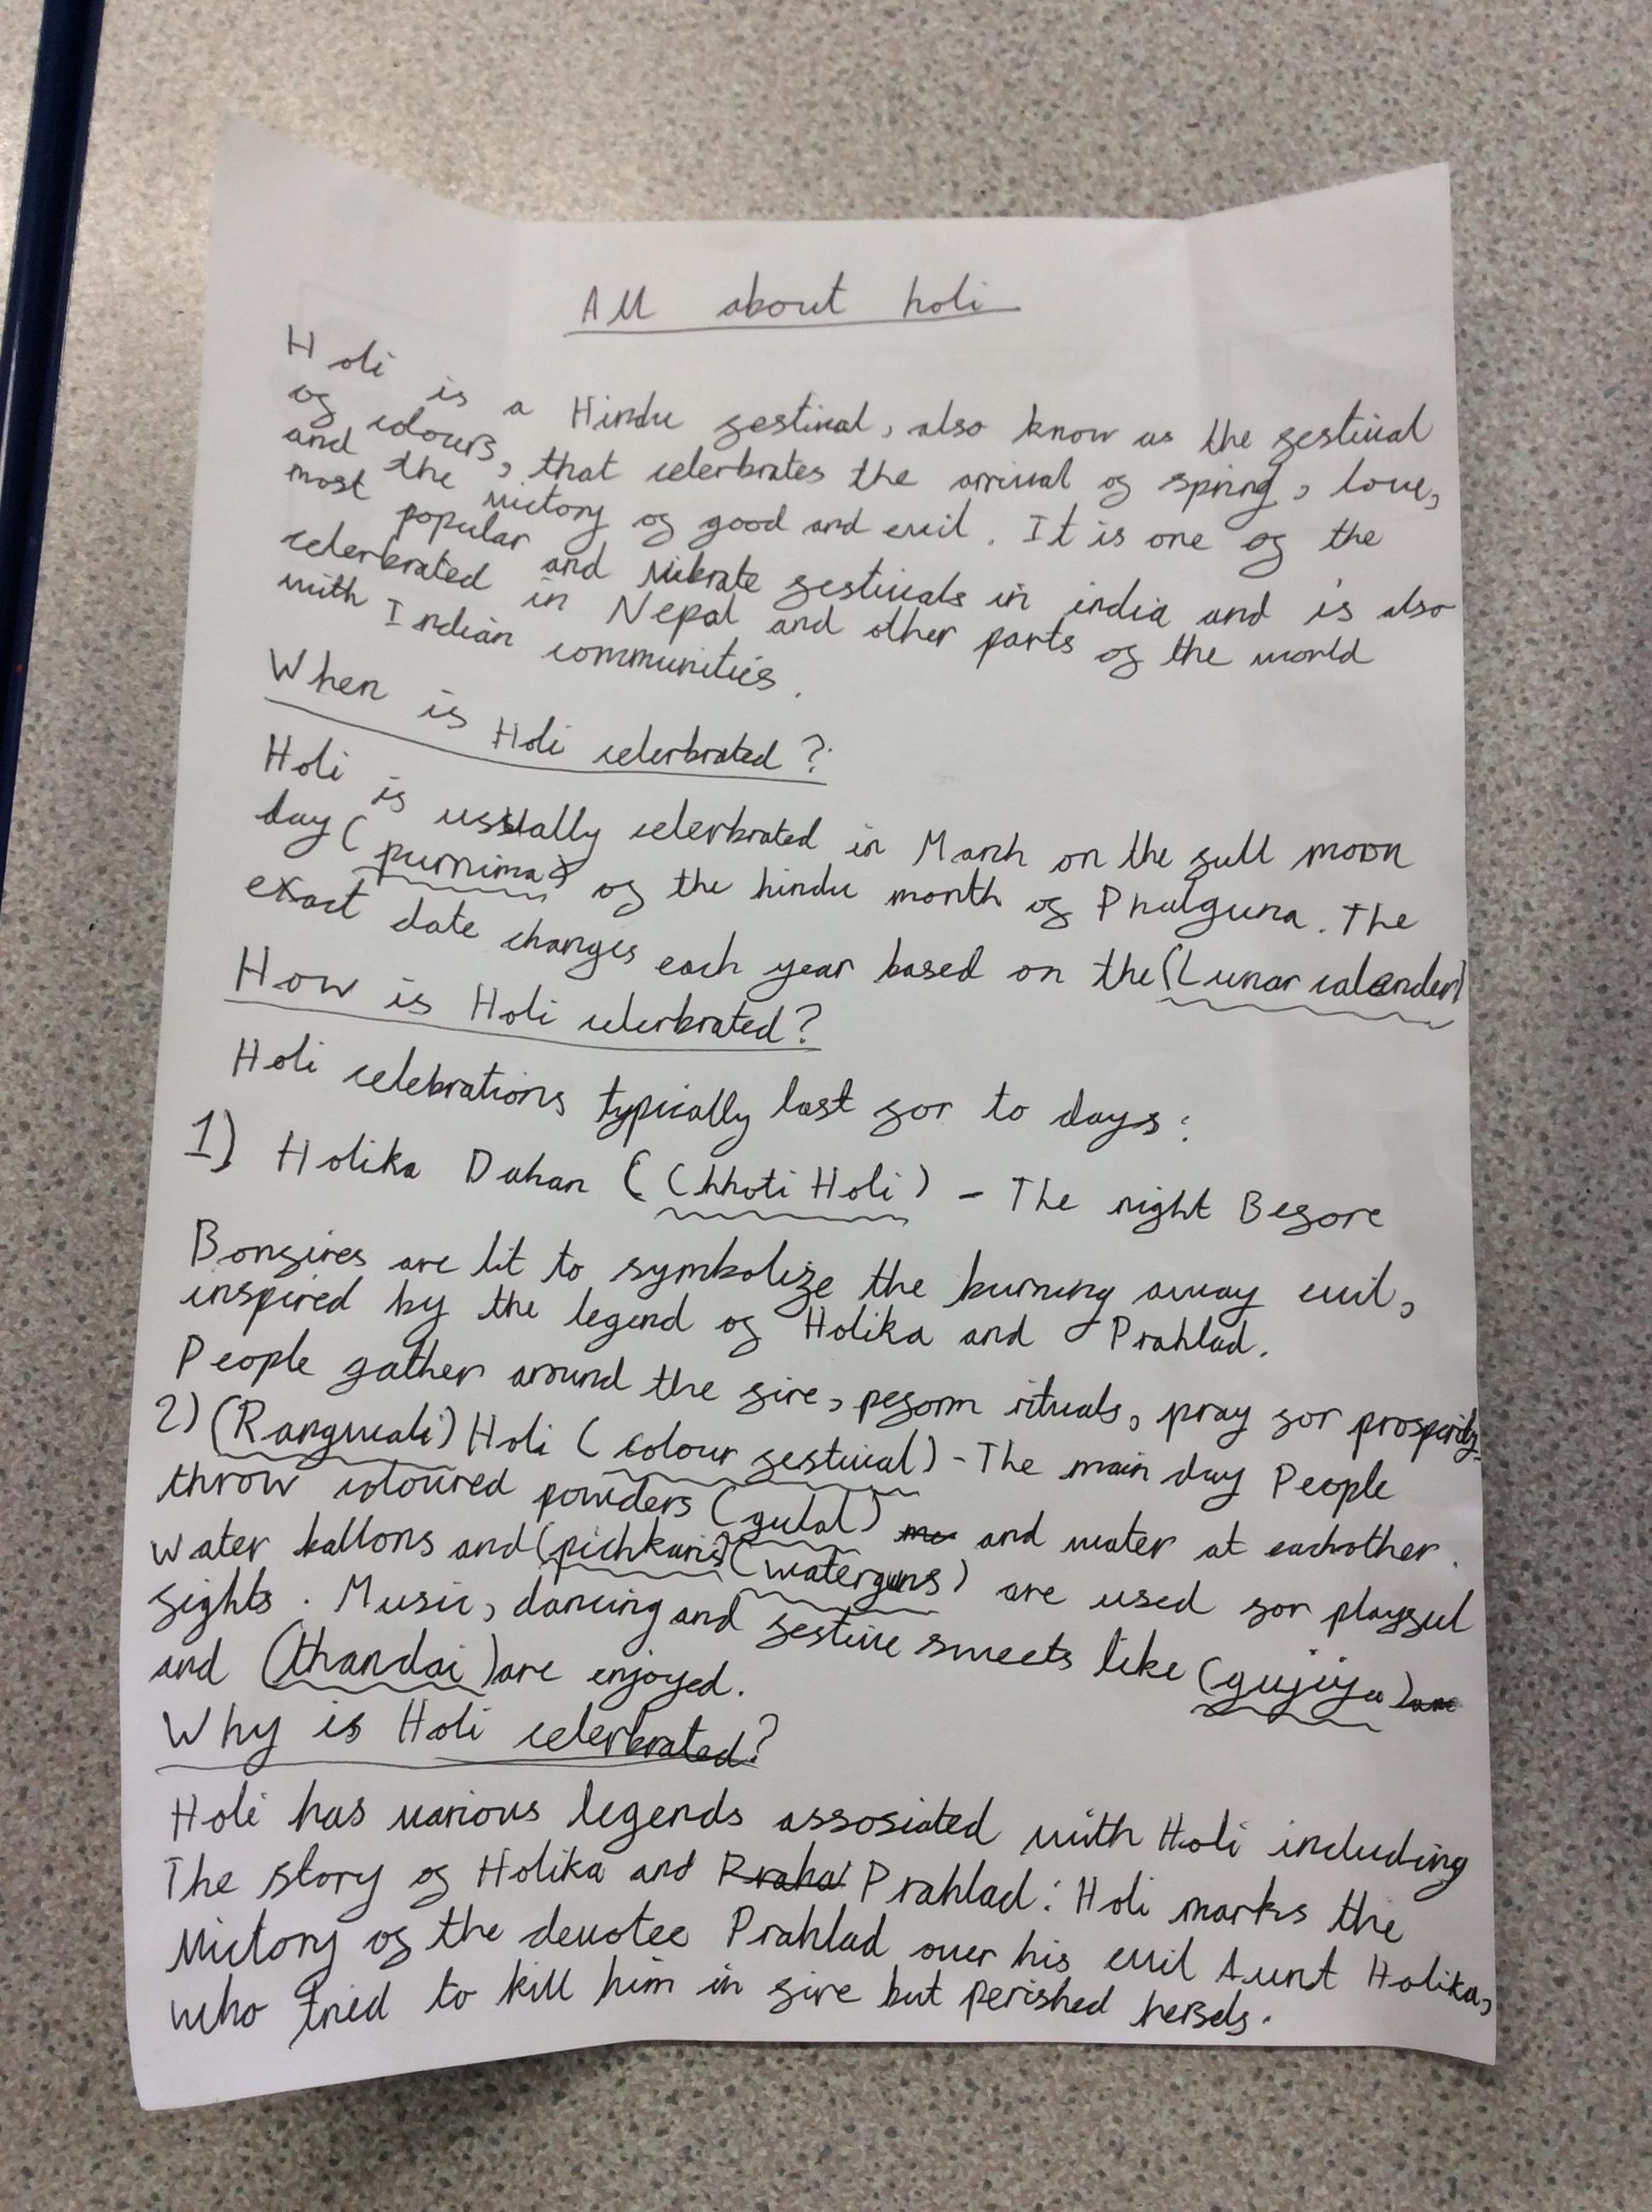 All about holi
Holi is a Hindu festival, also know as the festival
of colours, that celerbrates the arrival of spring, love,
and the victory of good and evil. It is one of the
most popular and vibrate festivals in india and is also
celerbrated in Nepal and other parts of the world
with Indian communities.
When is Holi celerbrated?
Holi is usually celerbrated in March on the full moon
day (purnima) of the hindu month of Phalguna. The
exact date changes each year based on the (Lunar calander)
How is Holi celerbrated?
Holi celebrations typically last for to days:
1) Holika Dahan (Chhoti Holi) - The night Before
Bonfires are lit to symbolize the burning away evil,
inspired by the legend of Holika and Prahlad.
People gather around the fire, peform rituals, pray for prosperity.
2) (Rangwali) Holi (colour festival) - The main day People
throw coloured powders (gulal) and water at eachother.
Water ballons and (pichkaris) (waterguns) are used for playful
fights. Music, dancing and festive sweets like (gujiya)
and (thandai) are enjoyed.
Why is Holi celerbrated?
Holi has various legends assosiated with Holi including
The story of Holika and Prahlad: Holi marks the
victory of the devotee Prahlad over his evil Aunt Holika,
who tried to kill him in fire but perished herself.